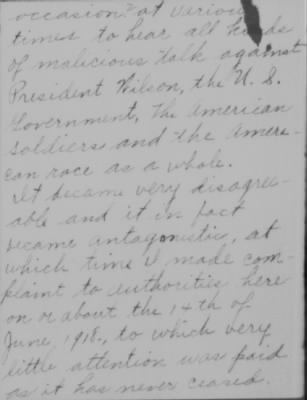 occasion? at various
times to hear all kinds
of malicious talk against
President Wilson, the U. S.
Government, the American
soldiers and the Ameri-
can race as a whole.
It became very disagre-
able and it in fact
became antagonistic, at
which time I made com-
plaint to authorities here
on or about the 14th of
June, 1918., to which very
little attention was paid
as it has never ceased.